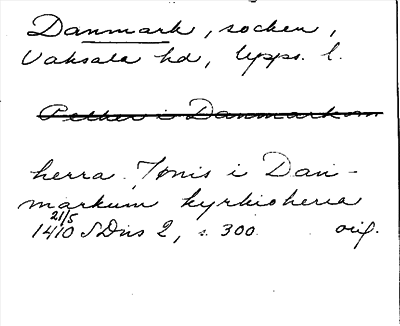 Danmark, socken,
Vaksala hd, Upps. l.
Petker i Danmarkum
herra Jönis i Dan-
markum kyrkioherra
21/5
1410 SDns 2, s. 300 orig.